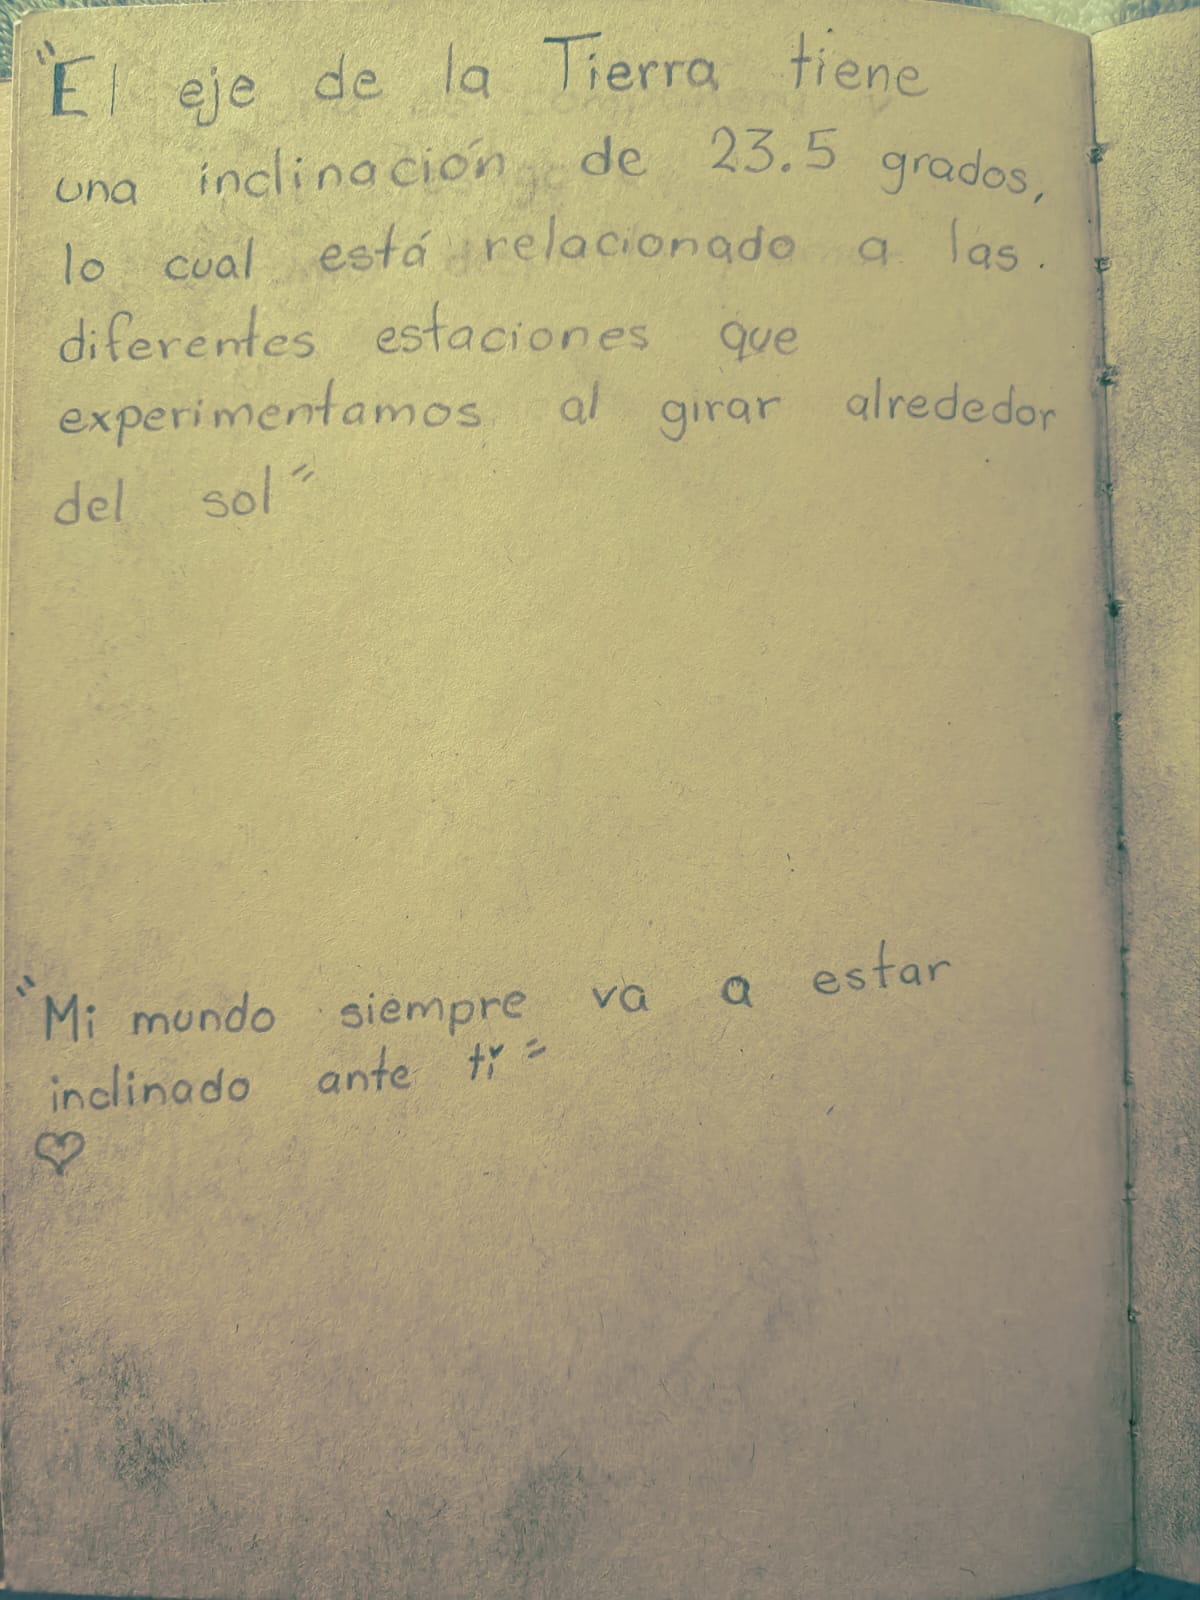 "El eje de la Tierra tiene
una inclinación de 23.5 grados,
lo cual está relacionado a las.
diferentes estaciones que
experimentamos al girar alrededor
del sol"
"Mi mundo siempre va a estar
inclinado ante ti"
♡